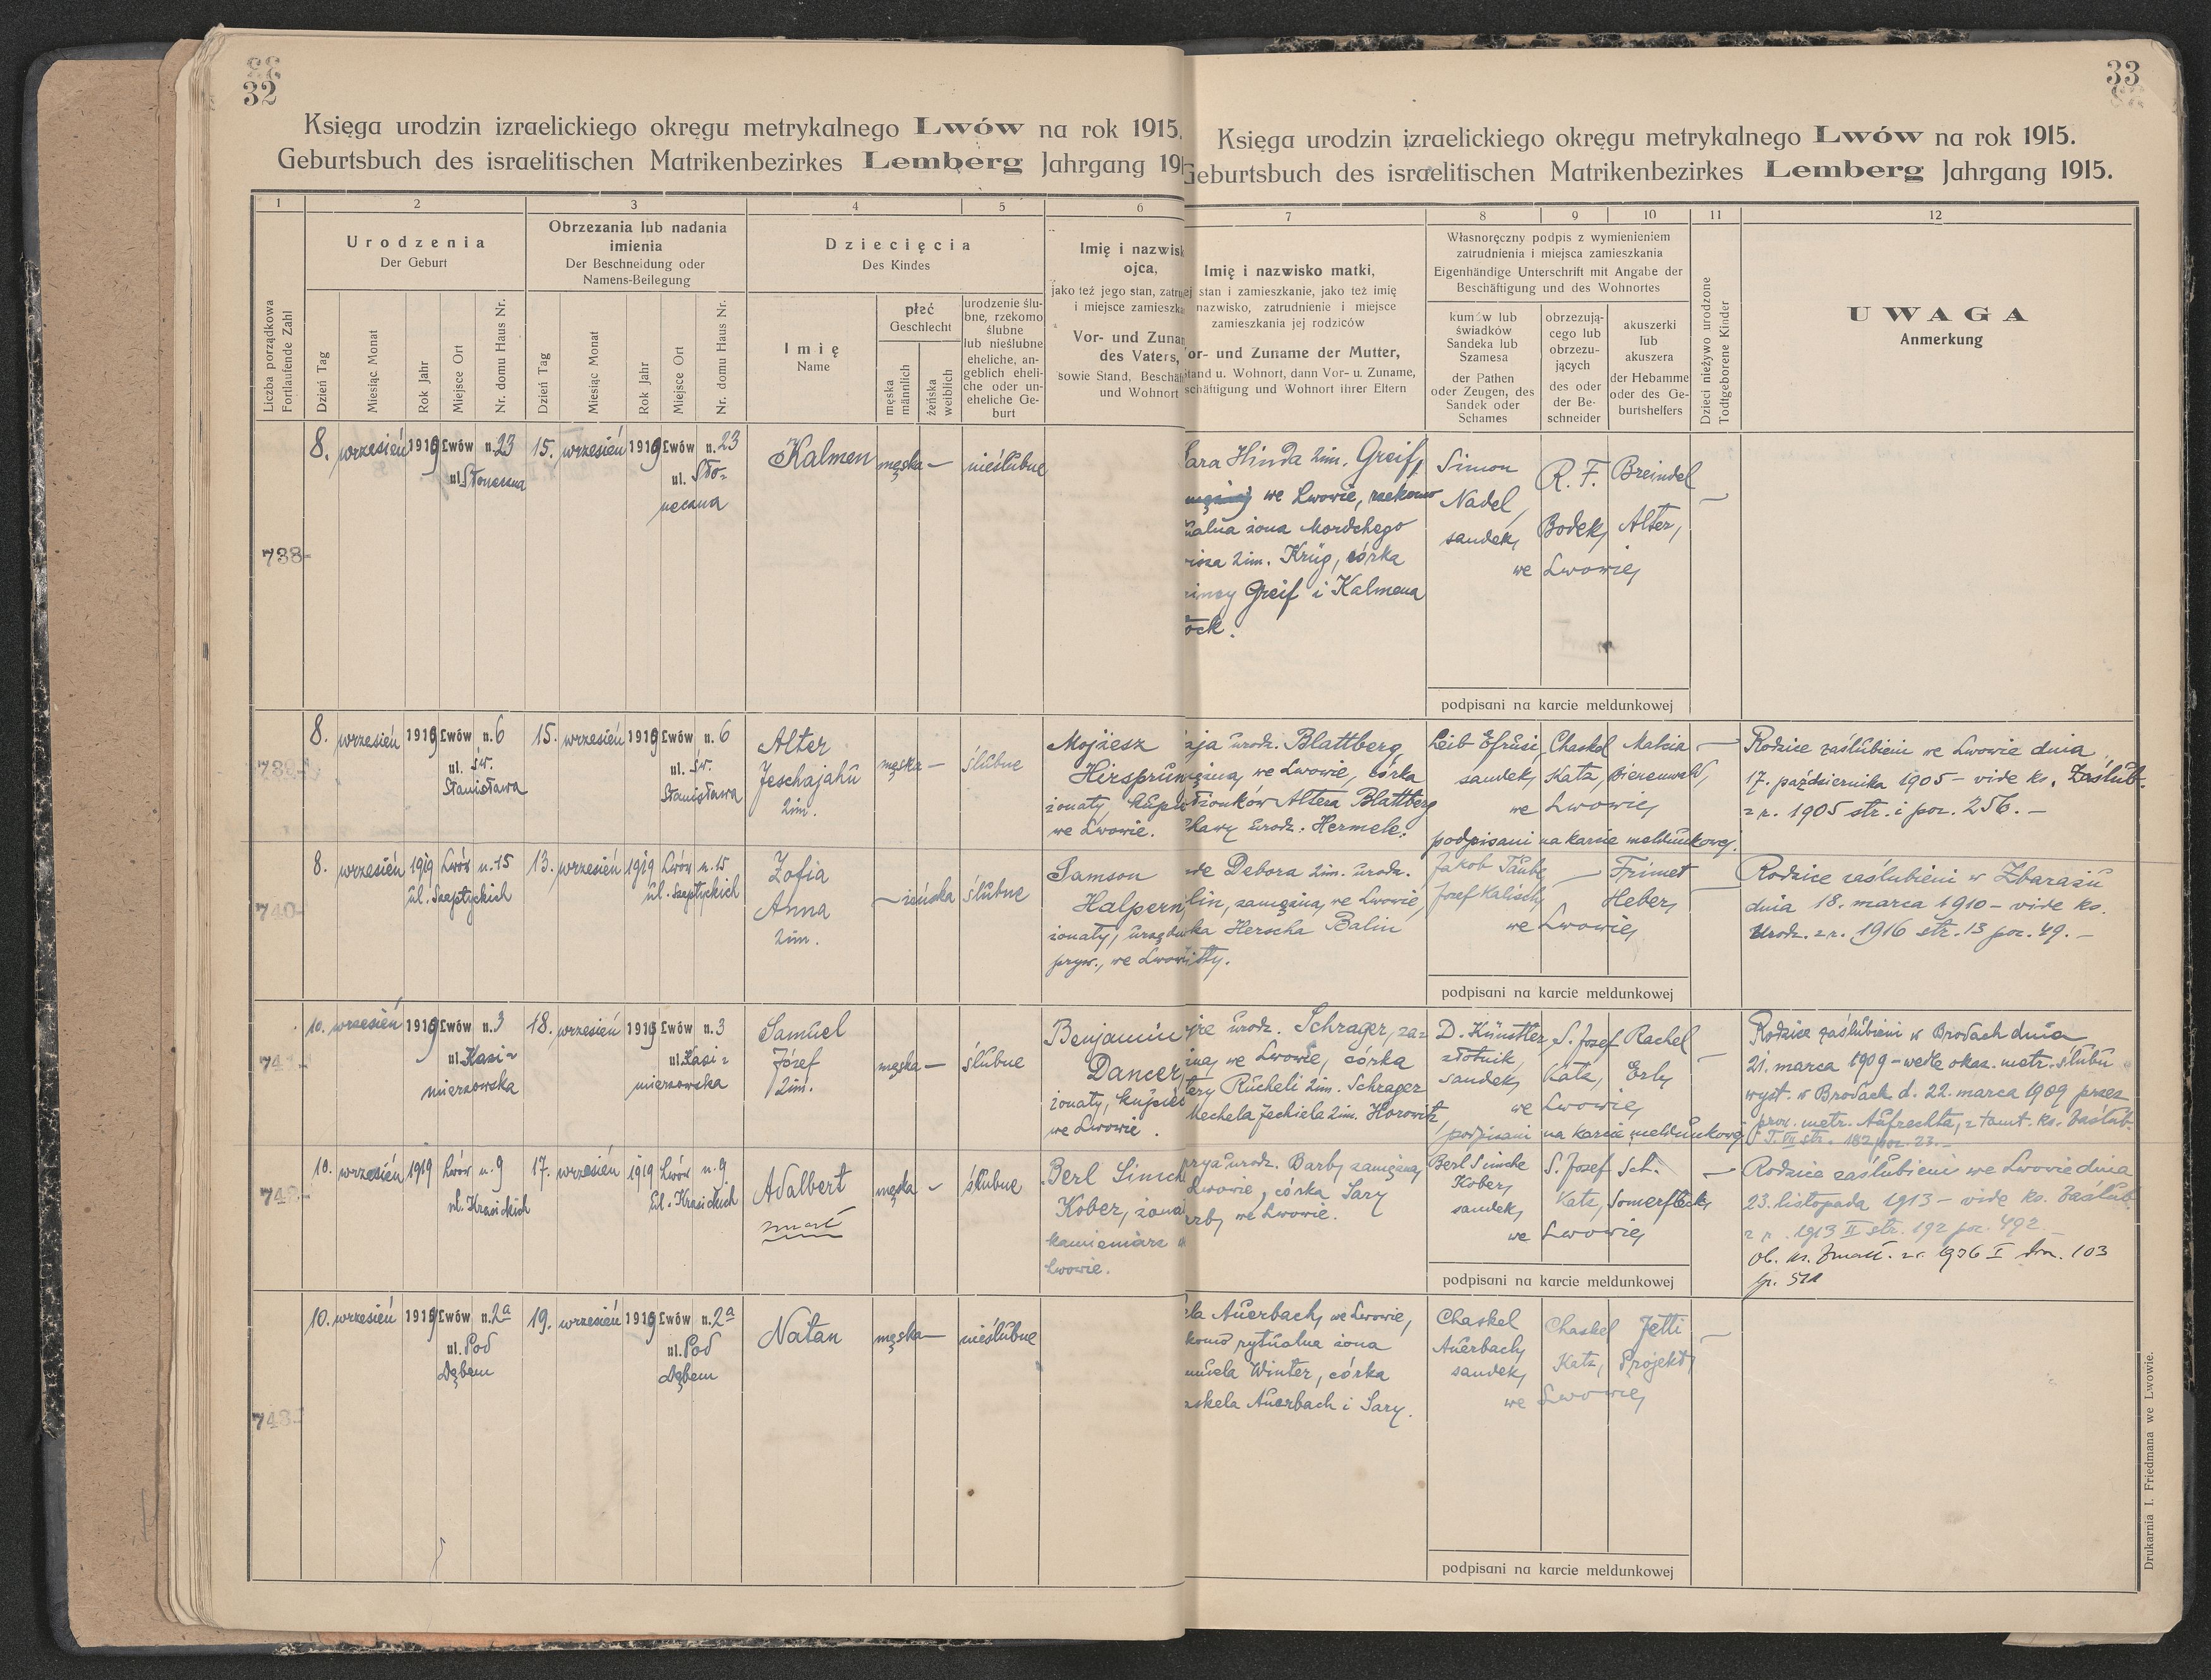 32
Księga urodzin izraelickiego okręgu metrykalnego Lwów na rok 1915.
Geburtsbuch des israelitischen Matrikenbezirkes Lemberg Jahrgang 19
1 2 3 4 5 6
Liczba porządkowa
Fortlaufende Zahl
Urodzenia
Der Geburt
Dzień Tag
Miesiąc Monat
Rok Jahr
Miejsce Ort
Nr. domu Haus Nr.
Obrzezania lub nadania
imienia
Der Beschneidung oder
Namens-Beilegung
Dzień Tag
Miesiąc Monat
Rok Jahr
Miejsce Ort
Nr. domu Haus Nr.
Dziecięcia
Des Kindes
Imię
Name
płeć
Geschlecht
męska
männlich
żeńska
weiblich
urodzenie ślu-
bne, rzekomo
ślubne
lub nieślubne
eheliche, an-
geblich eheli-
che oder un-
eheliche Ge-
burt
Imię i nazwisk
ojca,
jako też jego stan, zatru
i miejsce zamieszka
Vor- und Zunam
des Vaters,
sowie Stand, Beschäf
und Wohnort
738
8. wrzesień 1919 Lwów n. 23 15. wrzesień 1919 Lwów n. 23 Kalmen męska — nieślubne
ul. Słoneczna ul. Sło-
neczna
739
8. wrzesień 1919 Lwów n. 6 15. wrzesień 1919 Lwów n. 6 Alter męska — ślubne Mojżesz
ul. św. ul. św. Jeschajahu Hirsprun
Stanisława Stanisława 2im. żonaty, kupi
we Lwowie.
740
8. wrzesień 1919 Lwów n. 15 13. wrzesień 1919 Lwów n. 15 Zofia — żeńska ślubne Samson
ul. Szeptyckich ul. Szeptyckich Anna Halpern,
2im. żonaty, urzędn
pryw., we Lwowi
741
10. wrzesień 1919 Lwów n. 3 18. wrzesień 1919 Lwów n. 3 Samuel męska — ślubne Benjamin
ul. Kazi- ul. Kazi- Józef Dancer,
mierzowska mierzowska 2im. żonaty, kupiec
we Lwowie.
742
10. wrzesień 1919 Lwów n. 9 17. wrzesień 1919 Lwów n. 9 Adalbert męska — ślubne Berl Simch
ul. Krasickich ul. Krasickich zmarł Kober, żona
kamieniarz w
Lwowie.
743
10. wrzesień 1919 Lwów n. 2a 19. wrzesień 1919 Lwów n. 2a Natan męska — nieślubne
ul. Pod ul. Pod
Dębem Dębem
33
Księga urodzin izraelickiego okręgu metrykalnego Lwów na rok 1915.
Geburtsbuch des israelitischen Matrikenbezirkes Lemberg Jahrgang 1915.
7 8 9 10 11 12
Imię i nazwisko matki,
ej stan i zamieszkanie, jako też imię
nazwisko, zatrudnienie i miejsce
zamieszkania jej rodziców
or- und Zuname der Mutter,
tand u. Wohnort, dann Vor- u. Zuname,
schäftigung und Wohnort ihrer Eltern
Własnoręczny podpis z wymienieniem
zatrudnienia i miejsca zamieszkania
Eigenhändige Unterschrift mit Angabe der
Beschäftigung und des Wohnortes
kumów lub
świadków
Sandeka lub
Szamesa
der Pathen
oder Zeugen, des
Sandek oder
Schames
obrzezują-
cego lub
obrzezu-
jących
des oder
der Be-
schneider
akuszerki
lub
akuszera
der Hebamme
oder des Ge-
burtshelfers
Dzieci nieżywo urodzone
Todtgeborene Kinder
UWAGA
Anmerkung
ara Hinda 2im. Greif, Simon R. F. Breindel —
we Lwowie, rzekomo Nadel, Bodek, Alter,
ualna żona Mordchego sandek,
2im. Krüg, córka we Lwowie,
Greif i Kalmena
ock.
podpisani na karcie meldunkowej
aja urodz. Blattberg Leib Efrusi Chaskel Malcia — Rodzice zaślubieni we Lwowie dnia
we Lwowie, córka sandek, Katz, Bienenwald, 17. października 1905 – vide ks. Zaślub.
łżonków Altera Blattberg we Lwowie, z r. 1905 str. i poz. 256. —
Chawy urodz. Hermele. podpisani na karcie meldunkowej.
de Debora 2im. urodz. Jakob Taube, — Frimet Rodzice zaślubieni w Zbarażu
lin, zamężna, we Lwowie, Josef Kalisch, Heber, dnia 18. marca 1910 – vide ks.
ka Herscha Balin we Lwowie, Urodz. z r. 1916 str. 13 poz. 49. —
itty.
podpisani na karcie meldunkowej
urodz. Schrager, za- D. Künstler, S. Josef Rachel — Rodzice zaślubieni w Brodach dnia
żna, we Lwowie, córka złotnik, Katz, Erly 21. marca 1909 – wedle okaz. metr. ślubu
tery Rucheli 2im. Schrager sandek, wyst. w Brodach d. 22. marca 1909 przez
Mechela Jechiela 2im. Horowitz we Lwowie, prow. metr. Aufrechta, z tamt. ks. Zaślub.
podpisani na karcie meldunkowej T. VII str. 182 poz. 23. —
urodz. Barb, zamężna Berl Simche S. Josef Sch. — Rodzice zaślubieni we Lwowie dnia
Lwowie, córka Sary Kober, Katz, Somerfleck, 23. listopada 1913 – vide ks. Zaślub.
arb, we Lwowie. sandek, z r. 1913 II str. 192 poz. 492
we Lwowie,
podpisani na karcie meldunkowej
la Auerbach, we Lwowie, Chaskel Chaskel Jetti —
komo rytualna żona Auerbach, Katz, Projekt,
muela Winter, córka sandek,
askela Auerbach i Sary. we Lwowie,
podpisani na karcie meldunkowej
Drukarnia I. Friedmana we Lwowie.